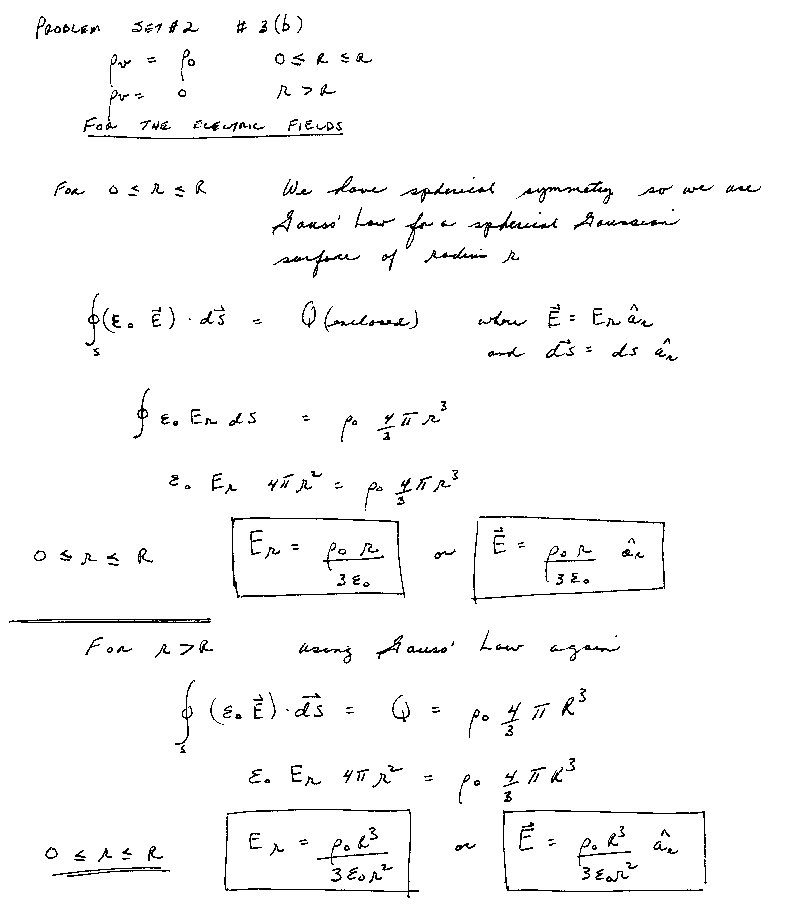 PROBLEM SET #2 # 3(b)
ρv = ρ0 0 ≤ r ≤ R
ρv = 0 r > R
FOR THE ELECTRIC FIELDS
FOR 0 ≤ r ≤ R We have spherical symmetry so we use
Gauss' Law for a spherical Gaussian
surface of radius r
∮s (ε0 E⃗) · ds⃗ = Q (enclosed) where E⃗ = Er âr
and ds⃗ = ds âr
∮ ε0 Er ds = ρ0 4/3 π r³
ε0 Er 4π r² = ρ0 4/3 π r³
0 ≤ r ≤ R Er = ρ0 r / 3ε0 or E⃗ = ρ0 r / 3ε0 âr
For r > R using Gauss' Law again
∮s (ε0 E⃗) · ds⃗ = Q = ρ0 4/3 π R³
ε0 Er 4π r² = ρ0 4/3 π R³
0 ≤ r ≤ R Er = ρ0 R³ / 3ε0r² or E⃗ = ρ0 R³ / 3ε0r² âr